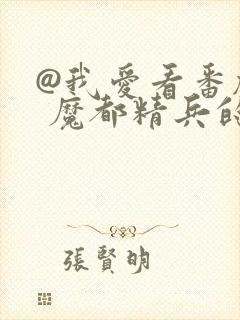 @我愛看番
魔都精兵的
張賢明